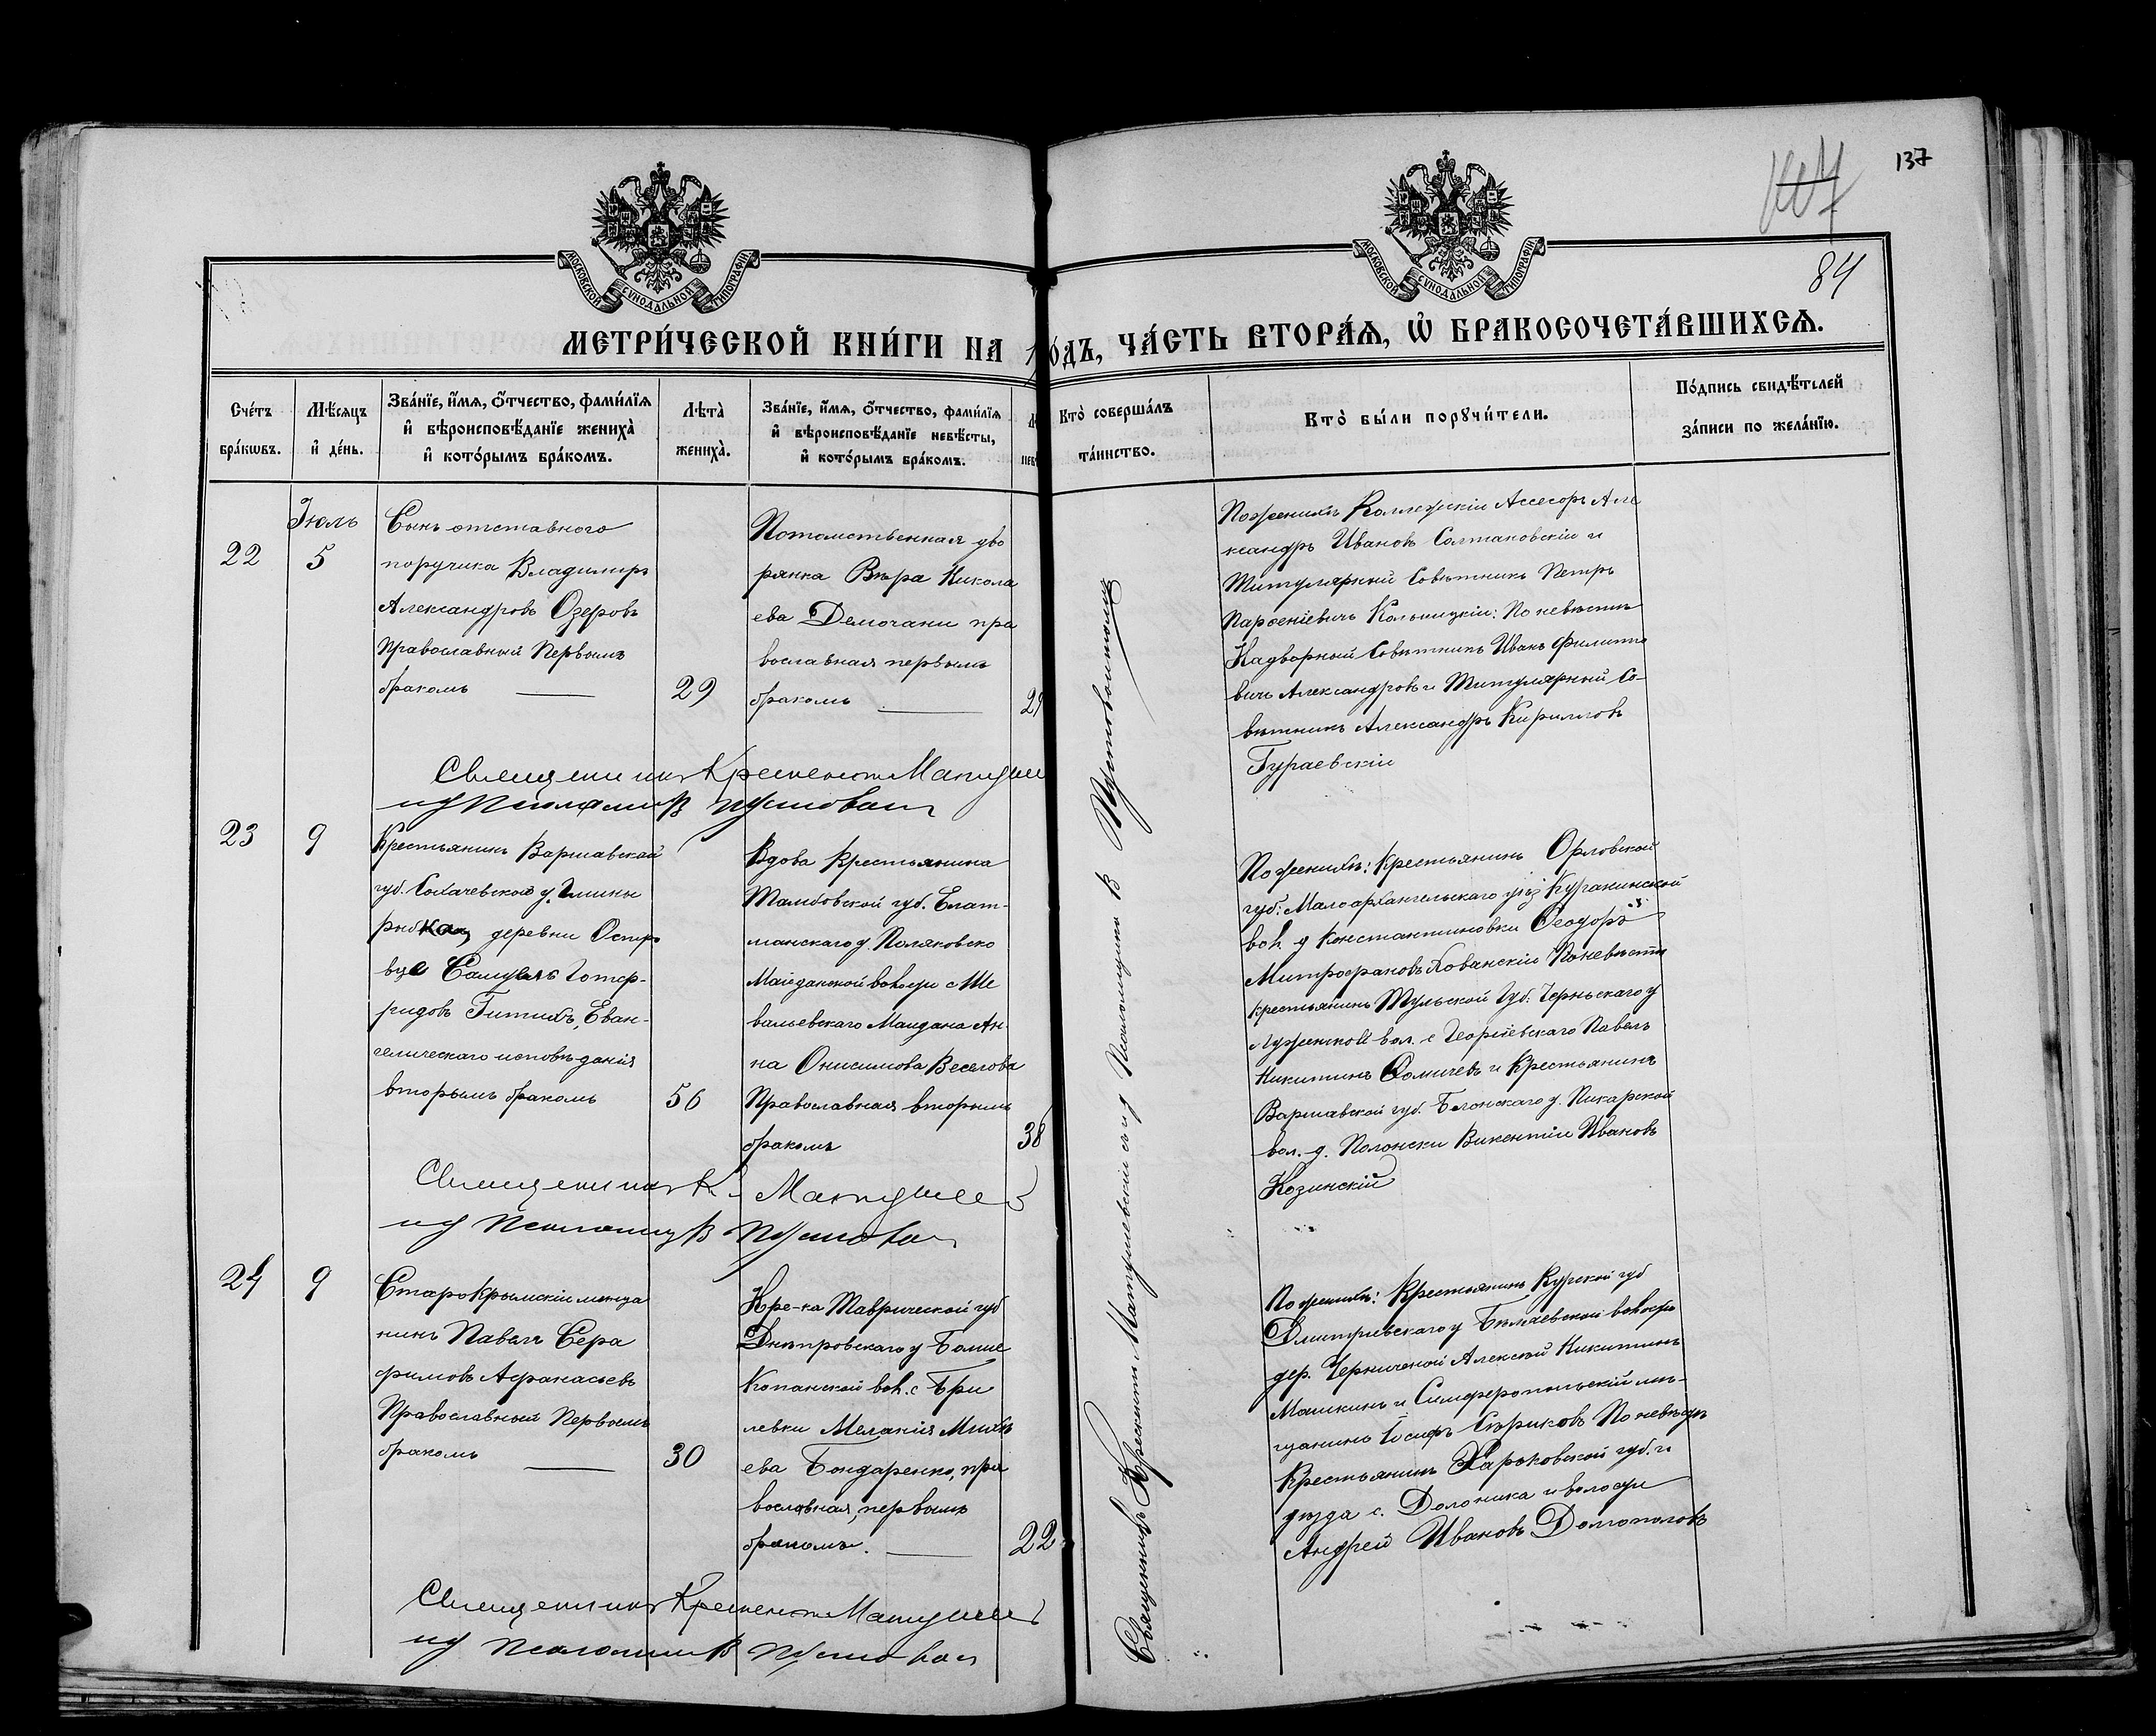 137
84
МОСКОВСКОЙ СУНОДАЛЬНОЙ ТИПОГРАФІИ
МОСКОВСКОЙ СУНОДАЛЬНОЙ ТИПОГРАФІИ
МЕТРИ́ЧЕСКОЙ КНИ́ГИ НА
ГО́ДЪ, ЧА́СТЬ ВТОРА́Я, Ѡ҆ БРАКОСОЧЕТА́ВШИХСЯ.
Сче́тъ бра́кѡвъ.
Мѣ́сяцъ и҆ де́нь.
Зва́нїе, и҆́мѧ, ѻ҆́тчество, фами́лїѧ
и҆ вѣроисповѣ́данїе жениха̀
и҆ кото́рымъ бра́комъ.
Лѣ́та̀ жениха̀.
Зва́нїе, и҆́мѧ, ѻ҆́тчество, фами́лїѧ
и҆ вѣроисповѣ́данїе невѣ́сты,
и҆ кото́рымъ бра́комъ.
Кто̀ соверша́лъ
та́инство.
Кто̀ бы́ли порꙋчи́тели.
По́дпись свидѣ́телей
за́писи по жела́нїю.
22
Іюль
5
Сынъ отставного
поручика Владимиръ
Александровъ Озеровъ
Православный Первымъ
бракомъ
29
Потомственная дво
рянка Вѣра Никола
ева Демочани пра
вославная первымъ
бракомъ
По женихѣ Коллежскій Ассесоръ Але
ксандръ Ивановъ Солтановскій и
Титулярный Совѣтникъ Петръ
Парѳеніевичъ По невѣстѣ
Надворный Совѣтникъ Иванъ Филиппо
вичъ Александровъ и Титулярный Со-
вѣтникъ Александръ Кирилловъ
Гураевскій
Священникъ Крискентъ
псаломщикъ В
23
9
Крестьянинъ Варшавской
губ. Сохачевскаго у. Гмины
деревни Остро
вце Самуилъ Готф-
ридовъ Еван-
гелическаго исповѣданія
вторымъ бракомъ
56
Вдова Крестьянина
Тамбовской губ. Елать-
мскаго у. Поляковско
Майданской волости с Ше
вальевскаго Майдана Ан-
на Онисимова Веселова
Православная вторымъ
бракомъ
38
По женихѣ: Крестьянинъ Орловской
губ. Малоархангельскаго уѣз Куракинской
вол. д Константиновки Ѳеодоръ
Митрофановъ Хованскій По невѣстѣ
крестьянинъ Тульской Губ. Черньскаго у
вол. с Георгіевскаго Павелъ
Никитинъ Сомичевъ и Крестьянинъ
Варшавской губ. Блонскаго у. Пикарской
вол. д. Полонски Викентій Ивановъ
Козинскій
Священникъ К.
псаломщикъ В
24
9
Старокрымскій мѣща
нинъ Павелъ Сера
фимовъ Афанасьевъ
Православный Первымъ
бракомъ
30
Кре-ка Таврической губ
Днѣпровскаго у Больше
Копанской вол. с Бри
левки Меланія Михѣ
ева Бондаренко, пра
вославная, первымъ
бракомъ.
22
По женихѣ: Крестьянинъ Курской губ
Дмитріевскаго у Бѣляевской волости
дер. Черничной Алексѣй Никитинъ
Машкинъ и Симферопольскій мѣ-
щанинъ Іосифъ Сѣриковъ По невѣстѣ
Крестьянинъ Харьковской губ. и
уѣзда с. Должика и волости
Андрей Ивановъ Долгополовъ
Священникъ Крискентъ
псаломщикъ В
Священникъ Крискентъ Матушевскій и у Псаломщика В Пустовойтовъ